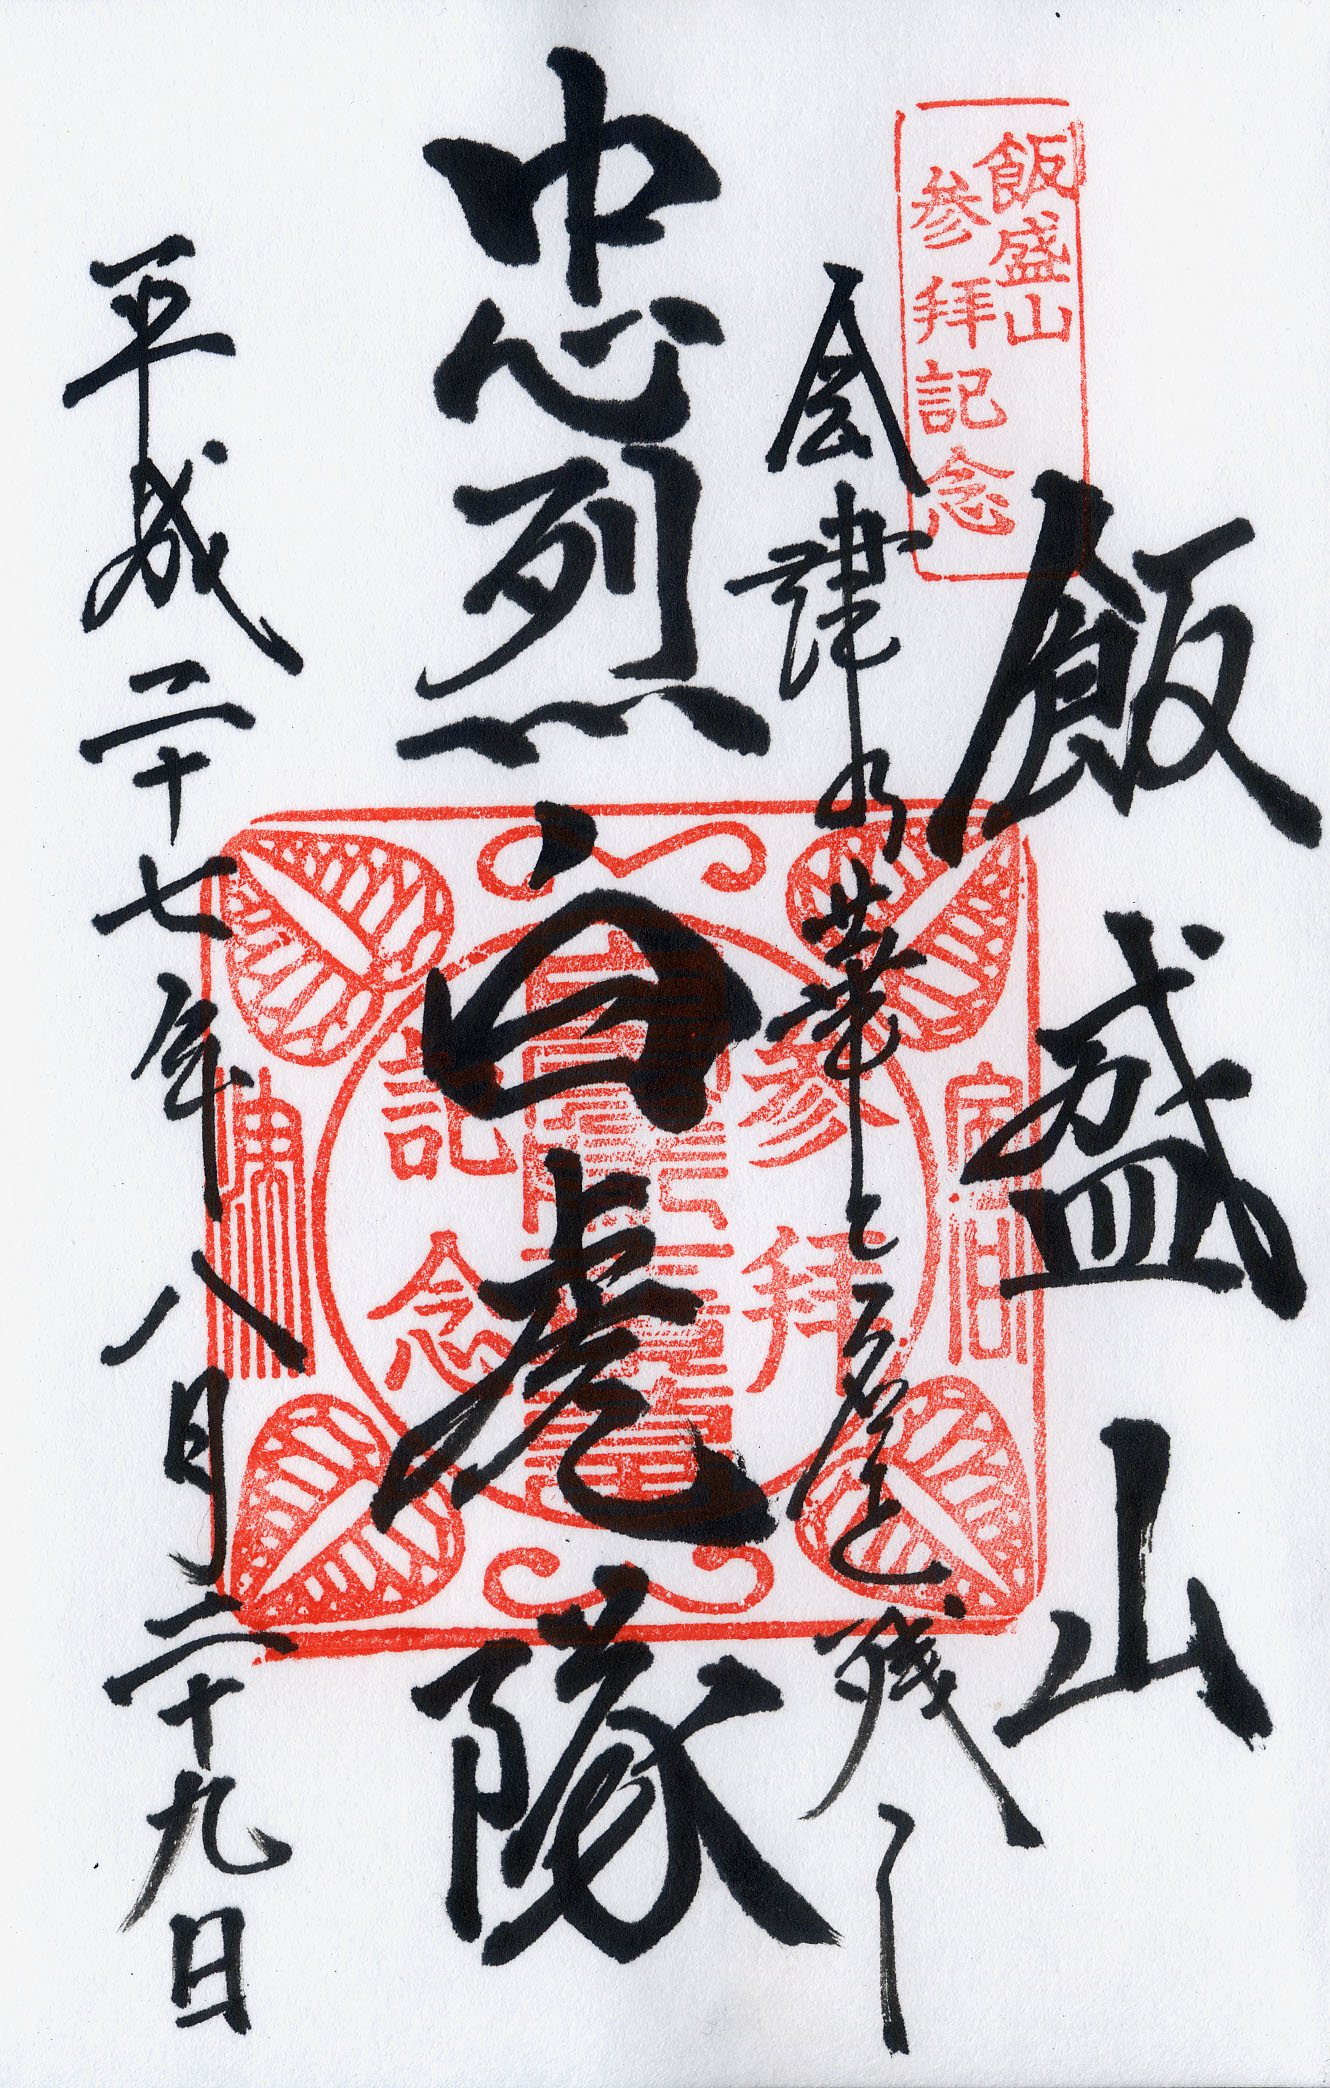 飯盛山
参拝記念
飯盛山
会津
華と名を残し
忠烈白虎隊
参拝
記念
平成二十七年八月二十九日